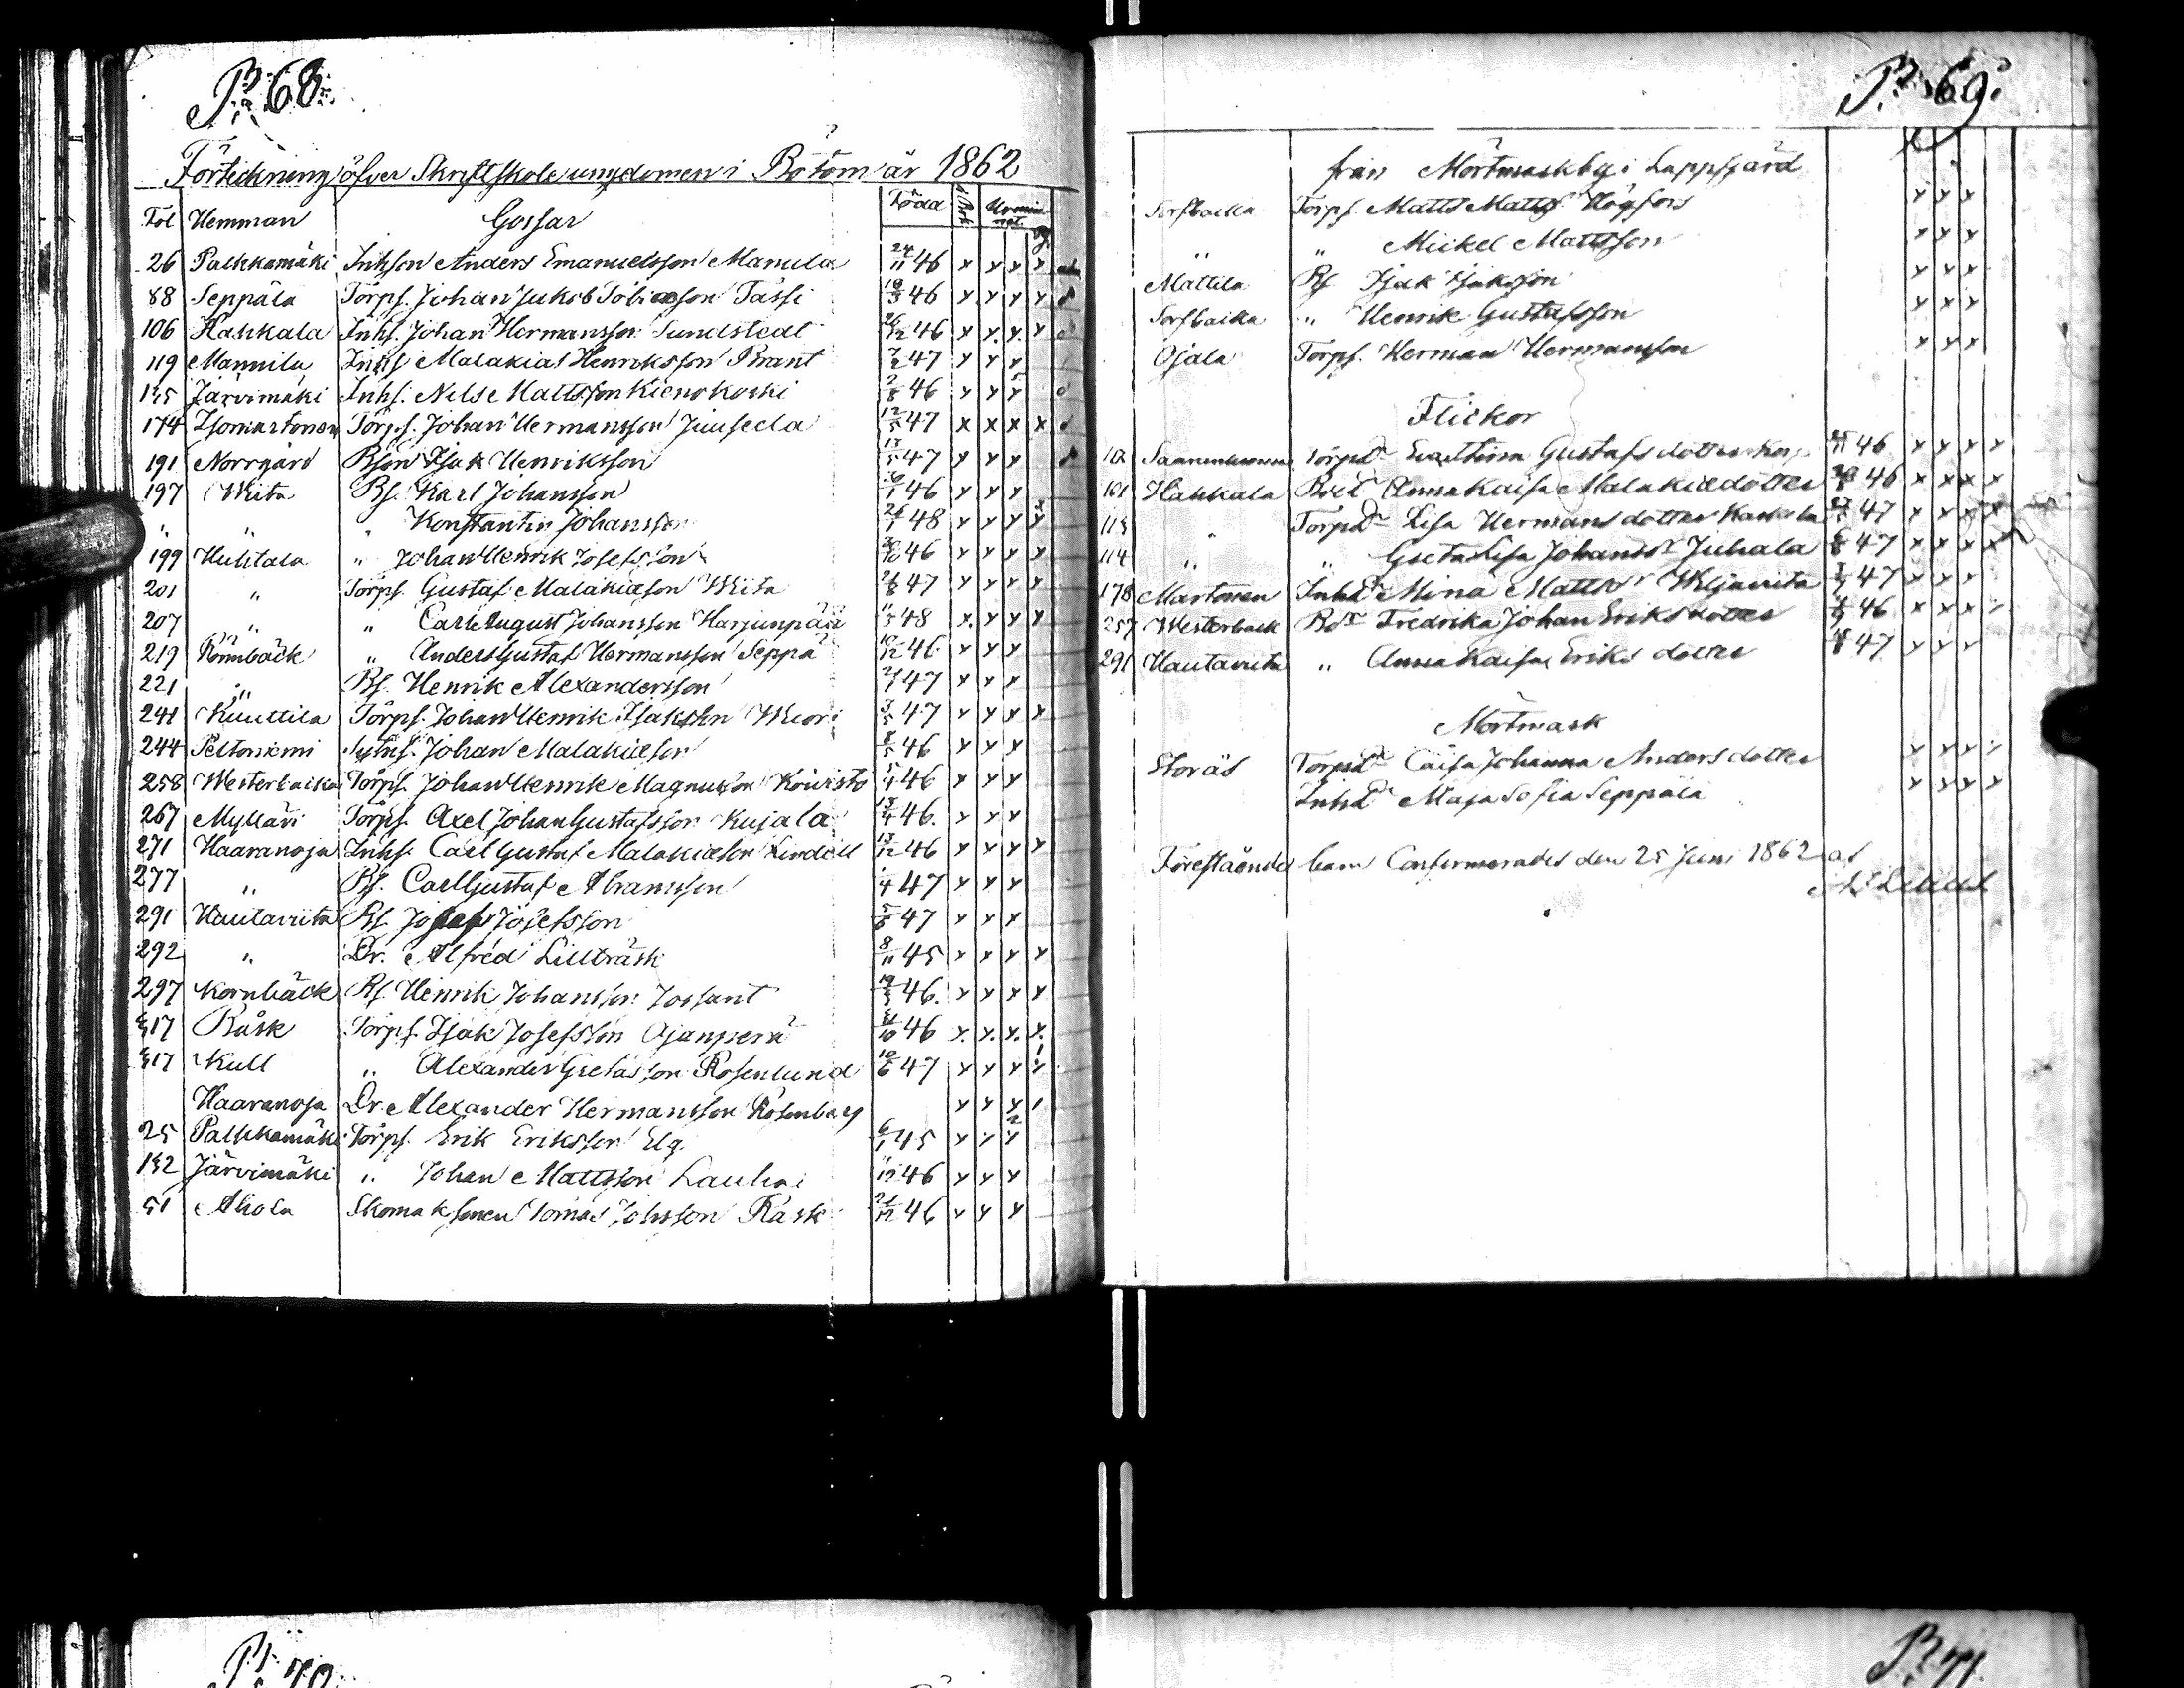 P. 68.
Förteckning öfver Skriftskole ungdomen i Bötom år 1862
Fol Hemman Gossar Född
26 Palkkamäki Inhson Anders Emanuelsson Manula 24/11 46 x x x x
88 Seppälä Torps. Johan Jakob Tobiasson Tassi 46 x x x x
106 Hakkala Inhs. Johan Hermansson Sundstedt 26/12 46 x x x x
119 Mannila Inhs Malakias Henriksson Brant 47 x x x
135 Järvimäki Inhs. Nils Mattsson Kienokoski 46 x x x
174 Isomartonen Torps. Johan Hermansson Juusela 12/5 47 x x x x
191 Norrgård Bson Isak Henriksson 47 x x x
197 Wiita Bs. Karl Johansson 46 x x x
" " " Konstantin Johansson 26/1 48 x x x
199 Huhtala " Johan Henrik Josefsson 46 x x x x
201 " Torps. Gustaf Malakiasson Wiita 47 x x x x
207 " " Carl August Johansson Harjunpää 48 x x x x
219 Rönnbäck " Anders Gustaf Hermansson Seppä 10/12 46 x x x
221 " Bs. Henrik Alexandersson 47 x x x
241 Kuuttila Torps. Johan Henrik Isaksson Wuori 3/5 47 x x x x
244 Peltoniemi Johan Malakiasson 46 x x x
258 Westerbacka Torps. Johan Henrik Magnusson Koivisto 46 x x x
267 Mylläri Torps. Axel Johan Gustafsson Kujala 46. x x x
271 Haaranoja Inhs. Carl Gustaf Malakiasson Lindell 13/12 46 x x x x
277 " Bs. Carl Gustaf Abramsson 47 x x x
291 Hautaviita Bs. Josef Josefsson 47 x x x
292 " Dr. Alfred Lillträsk 8/11 45 x x x x
297 Kornbäck Bs. Henrik Johansson Jossant 46. x x x x
317 Båsk Torps. Isak Josefsson Ojanperä 46 x x x x
317 Kull " Alexander Gretasson Rosenlund 10/6 47 x x x x
Haaranoja Dr. Alexander Hermansson Rosenberg x x x
25 Palkkamäki Torps. Erik Eriksson Elg. 45 x x x
132 Järvimäki " Johan Mattsson Lauhai 46 x x x
51 Ahola Skomak sonen Tomas Johsson Rask 21/12 46 x x x
P. 69.
från Mörtmark by i Lappfjärd
Torfbacka Torps. Matts Matts. Högfors x x x
" " Mickel Mattsson x x x
Mattila Bs Isak Isaksson x x x
Torfbacka " Henrik Gustafsson x x x
Ojala Torps. Herman Hermansson x x x
Flickor
102 Torpdr Eva Stina Gustafsdotter 46 x x x x
101 Hakkala Anna Kaisa Malakiædotter 46 x x x x
113 " Torpdr Lisa Hermansdotter 47 x x x x
114 " " Greta Lisa Johansdr Juhala 47 x x x x
178 Martonen Inhdr Mina Mattsdr 47 x x x
257 Westerback Bdr Fredrika Johan Eriksdotter 46 x x x
291 Hautaviita " Anna Kaisa Eriks dotter 47 x x x
Mörtmark
Storås Torpdr Caisa Johanna Andersdotter x x x
Inhdr Maja Sofia Seppälä x x x x
Förestående barn Confirmerades den 25 Juni 1862 af
P. 70.
P. 71.